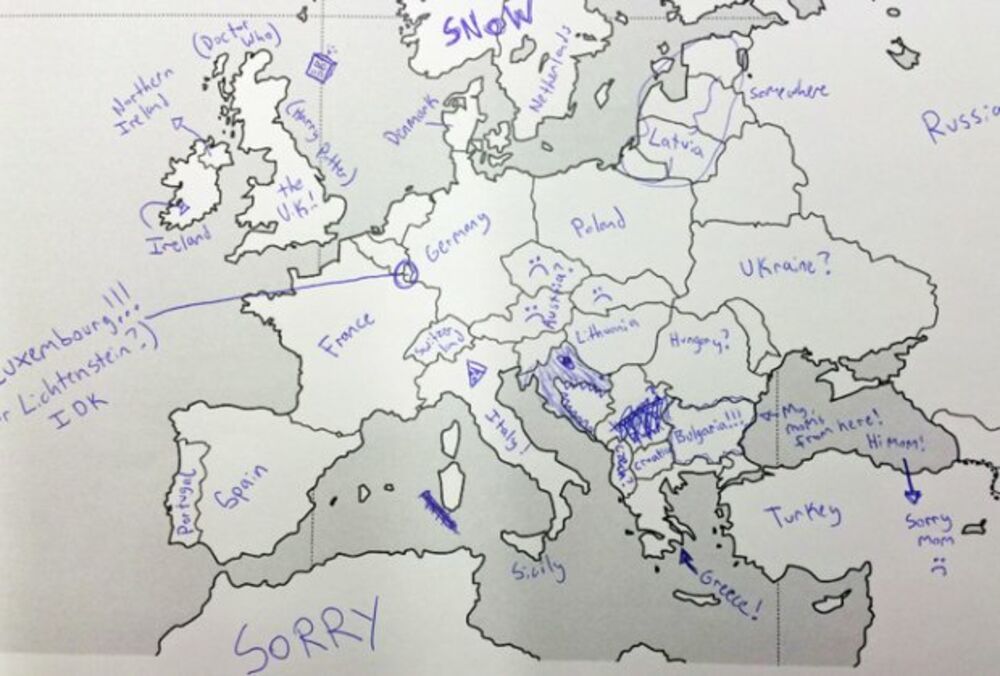 SNOW
(Doctor
Who)
Netherlands
Northern
Ireland
Denmark
somewhere
Russia
(Harry Potter)
Latvia
the
U.K.!
Ireland
Germany
Poland
Ukraine?
Luxembourg!!!
r Lichtenstein?)
IDK
France
Austria?
Switzer
land
Lithuania
Hungary?
Italy!
Bulgaria!!!
My
mom's
from here!
Hi Mom!
Portugal
Spain
Croatia
Czech?
Turkey
Sorry
mom
Sicily
Greece!
SORRY